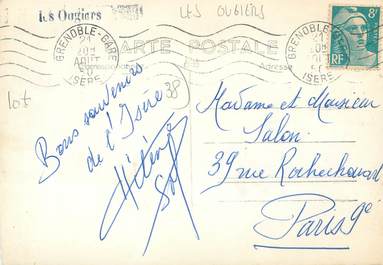 Les Ougiers
LES OUGIERS
GRENOBLE-GARE
AOUT
ISERE
GRENOBLE-GARE
ISERE
8F
RF
CARTE POSTALE
Correspondance
Adresse
38
lot
Bons souvenirs
de l'Isère
Hélène
Madame et Monsieur
Salon
39 rue Rochechouard
Paris 9e